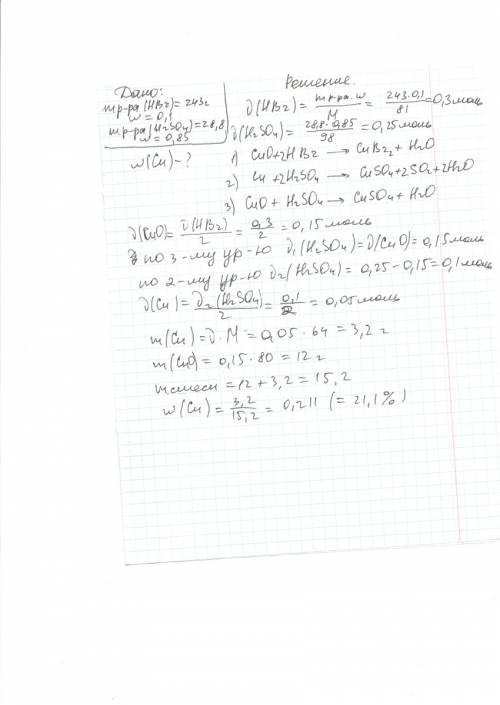 Дано:
mр-ра(HBr)=243г
w=0,1
mр-ра(H2SO4)=28,8
w=0,85
w(Cu)-?
Решение.
ν(HBr)=mр-ра·w/M=243·0,1/81=0,3моль
ν(H2SO4)=28,8·0,85/98=0,25моль
1) CuO+2HBr → CuBr2+H2O
2) Cu+2H2SO4 → CuSO4+SO2+2H2O
3) CuO+H2SO4 → CuSO4+H2O
ν(CuO)=ν(HBr)/2=0,3/2=0,15моль
по 3-му ур-ю ν1(H2SO4)=ν(CuO)=0,15моль
по 2-му ур-ю ν2(H2SO4)=0,25-0,15=0,1моль
ν(Cu)=ν2(H2SO4)/2=0,1/2=0,05моль
m(Cu)=ν·M=0,05·64=3,2г
m(CuO)=0,15·80=12г
mсмеси=12+3,2=15,2
w(Cu)=3,2/15,2=0,211 (=21,1%)